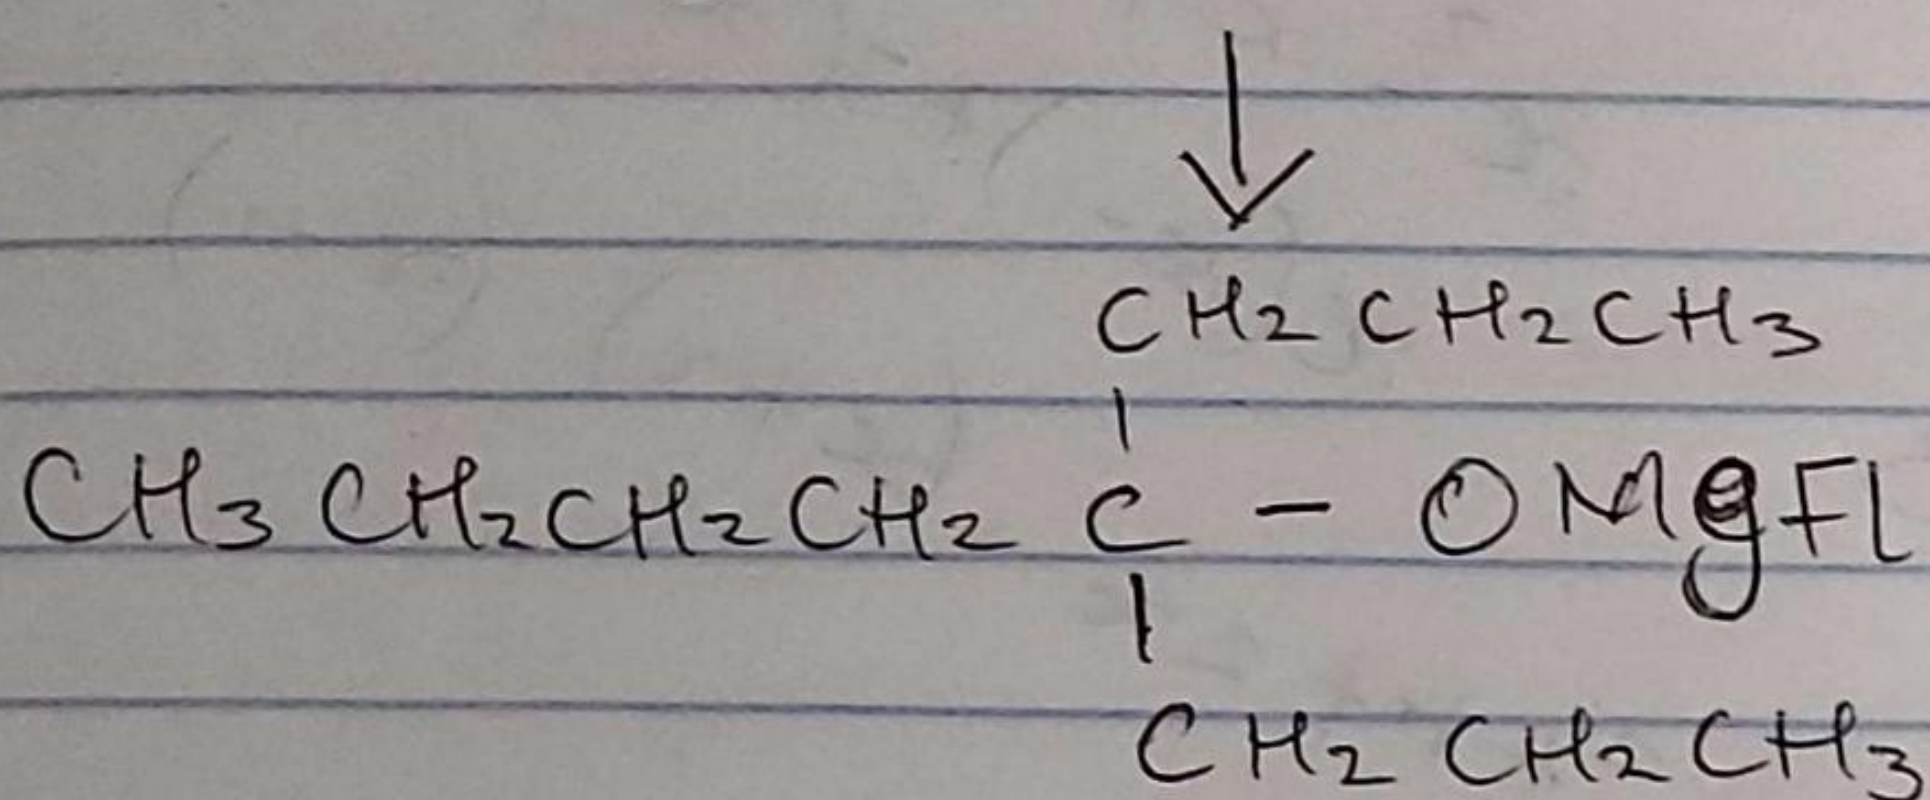 CH2CH2CH3
CH3CH2CH2CH2 C - OMgFl
CH2CH2CH3